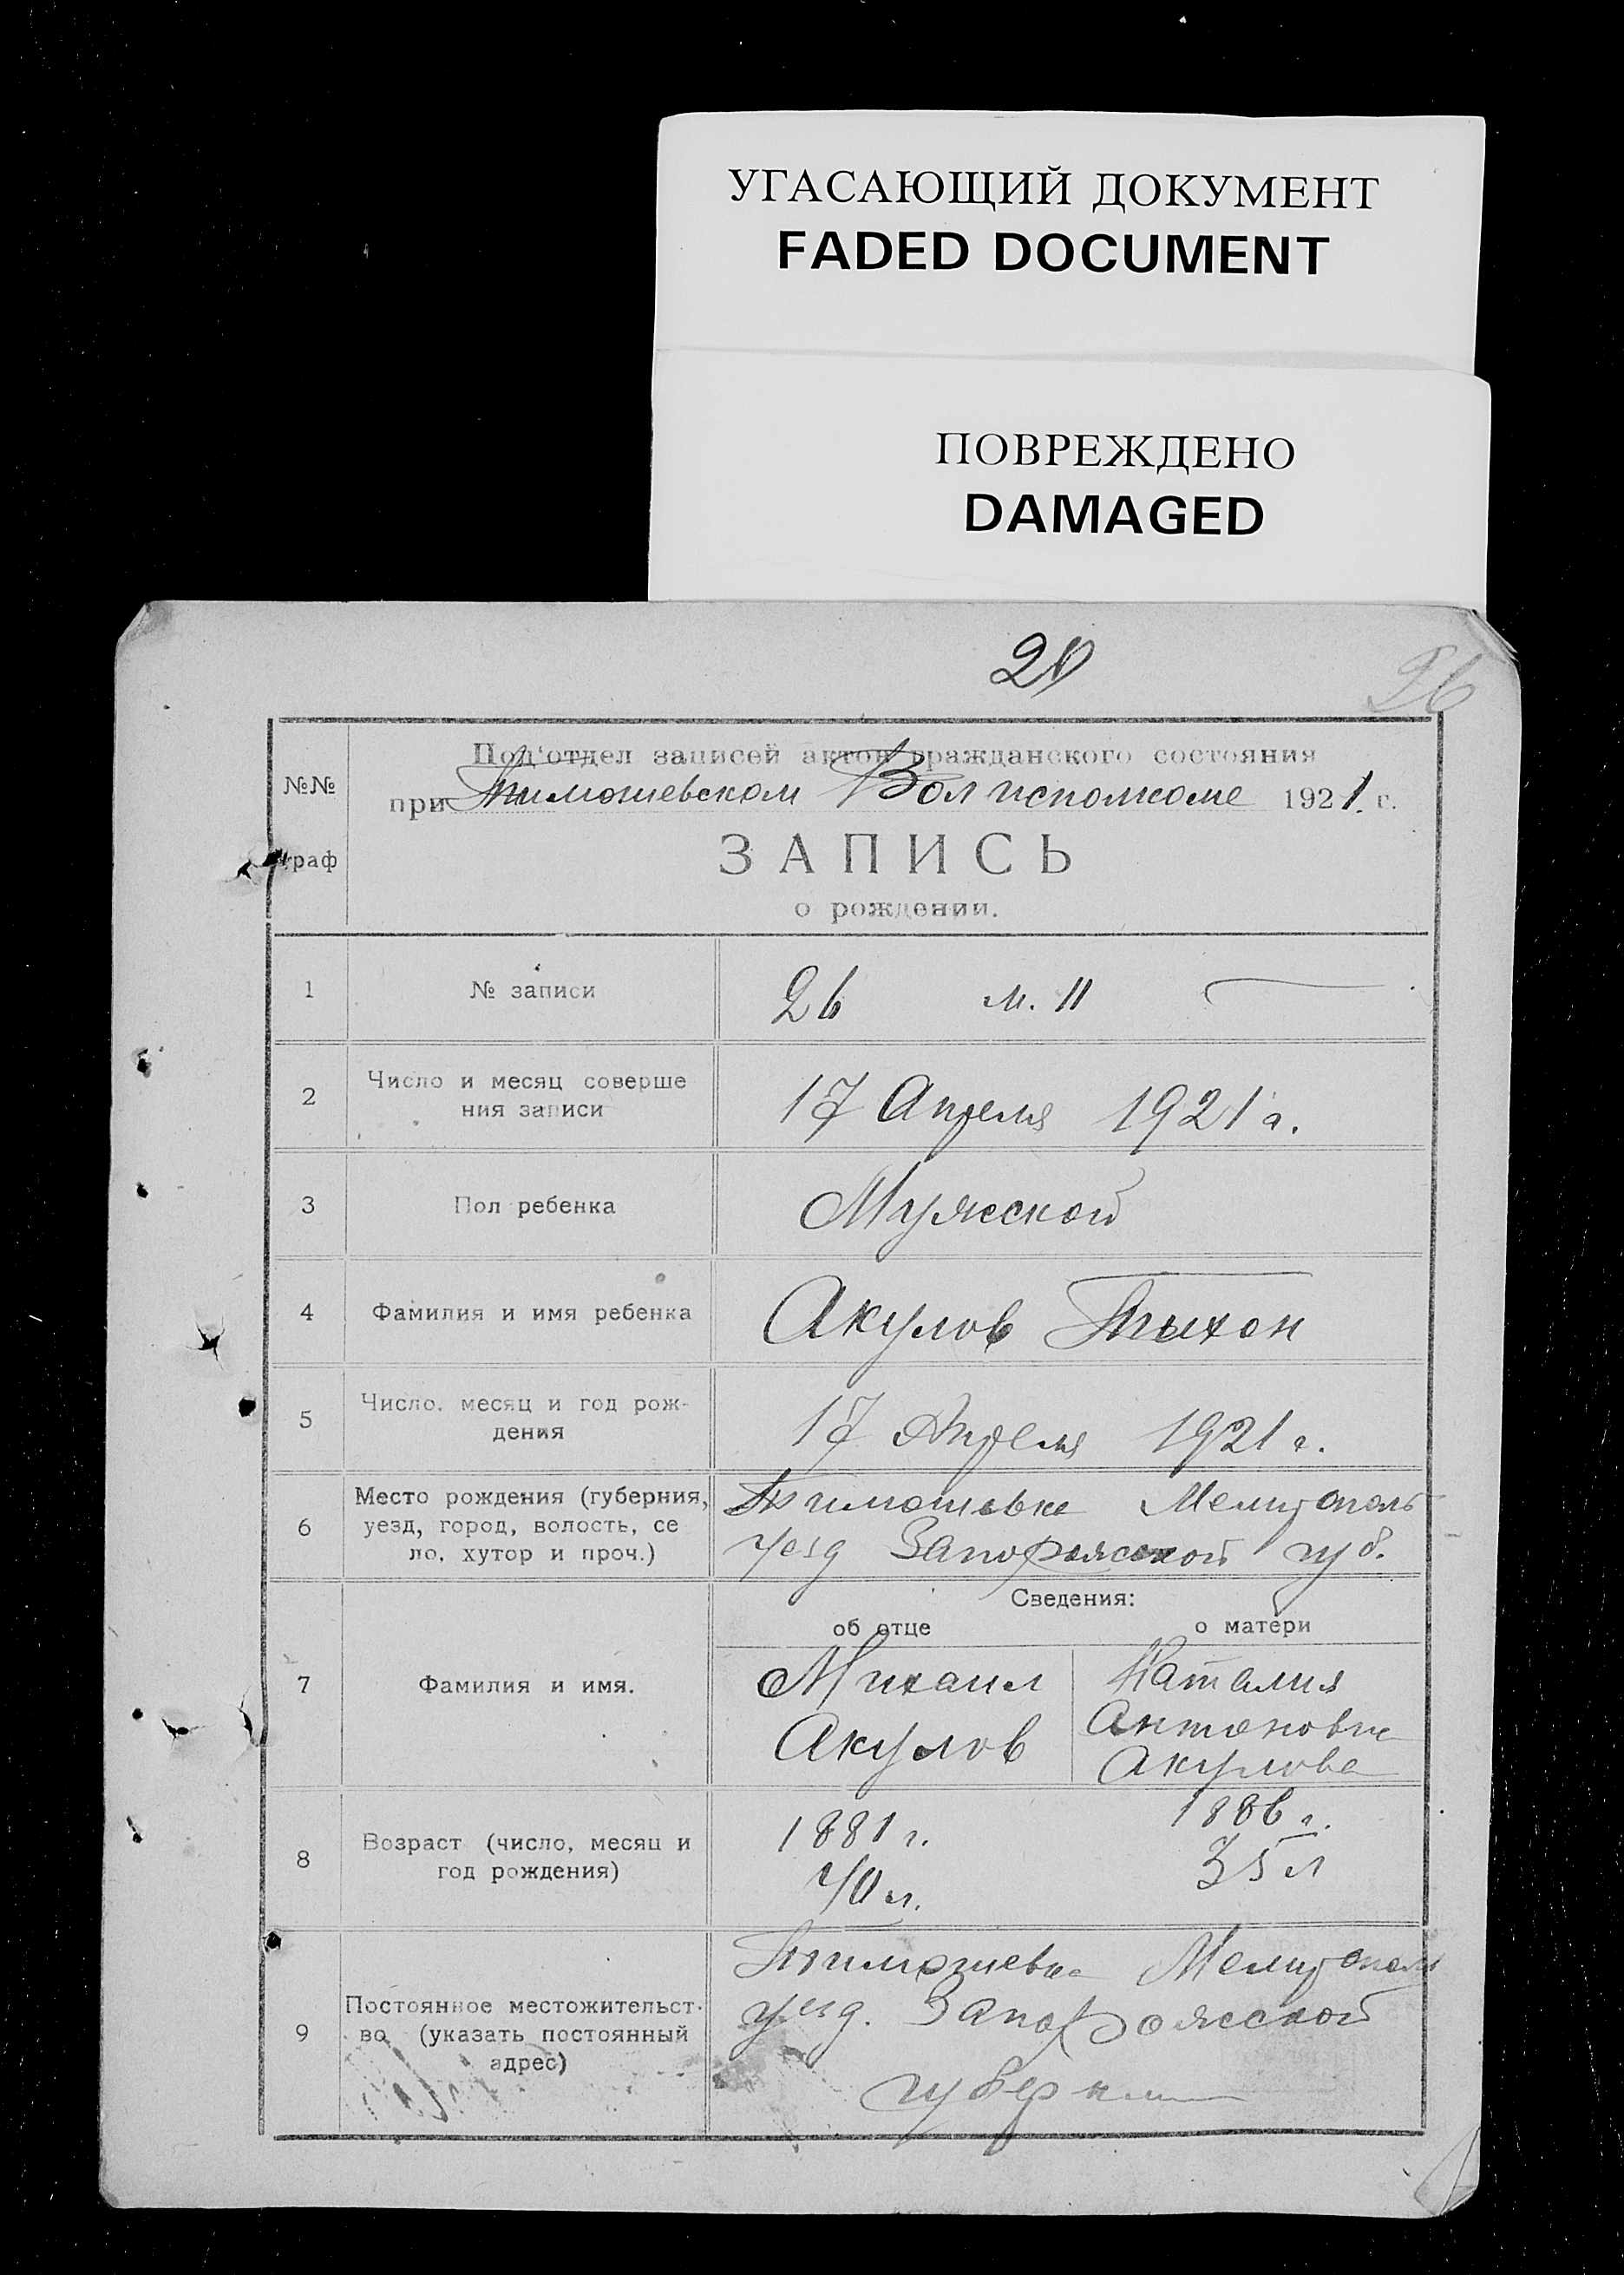 УГАСАЮЩИЙ ДОКУМЕНТ
FADED DOCUMENT
ПОВРЕЖДЕНО
DAMAGED
26
№№
граф
Под'отдел записей актов гражданского состояния
при Тимошевском Волисполкоме 1921. г.
ЗАПИСЬ
о рождении.
1 № записи 26 м. II
2 Число и месяц соверше
ния записи
17 Апреля 1921 г.
3 Пол ребенка Мужской
4 Фамилия и имя ребенка Акулов Тыхон
5 Число, месяц и год рож-
дения
17 Апреля 1921 г.
6 Место рождения (губерния,
уезд, город, волость, се
ло, хутор и проч.)
Тимошевка Мелитополь
уезд Запорожской губ.
Сведения:
об отце о матери
7 Фамилия и имя.
Михаил
Акулов
Наталия
Антоновна
Акулова
8 Возраст (число, месяц и
год рождения)
1881 г.
40 л.
1886 г.
35 л
9 Постоянное местожительст-
во (указать постоянный
адрес)
Тимошевка Мелитополь
уезд. Запорожской
губернии